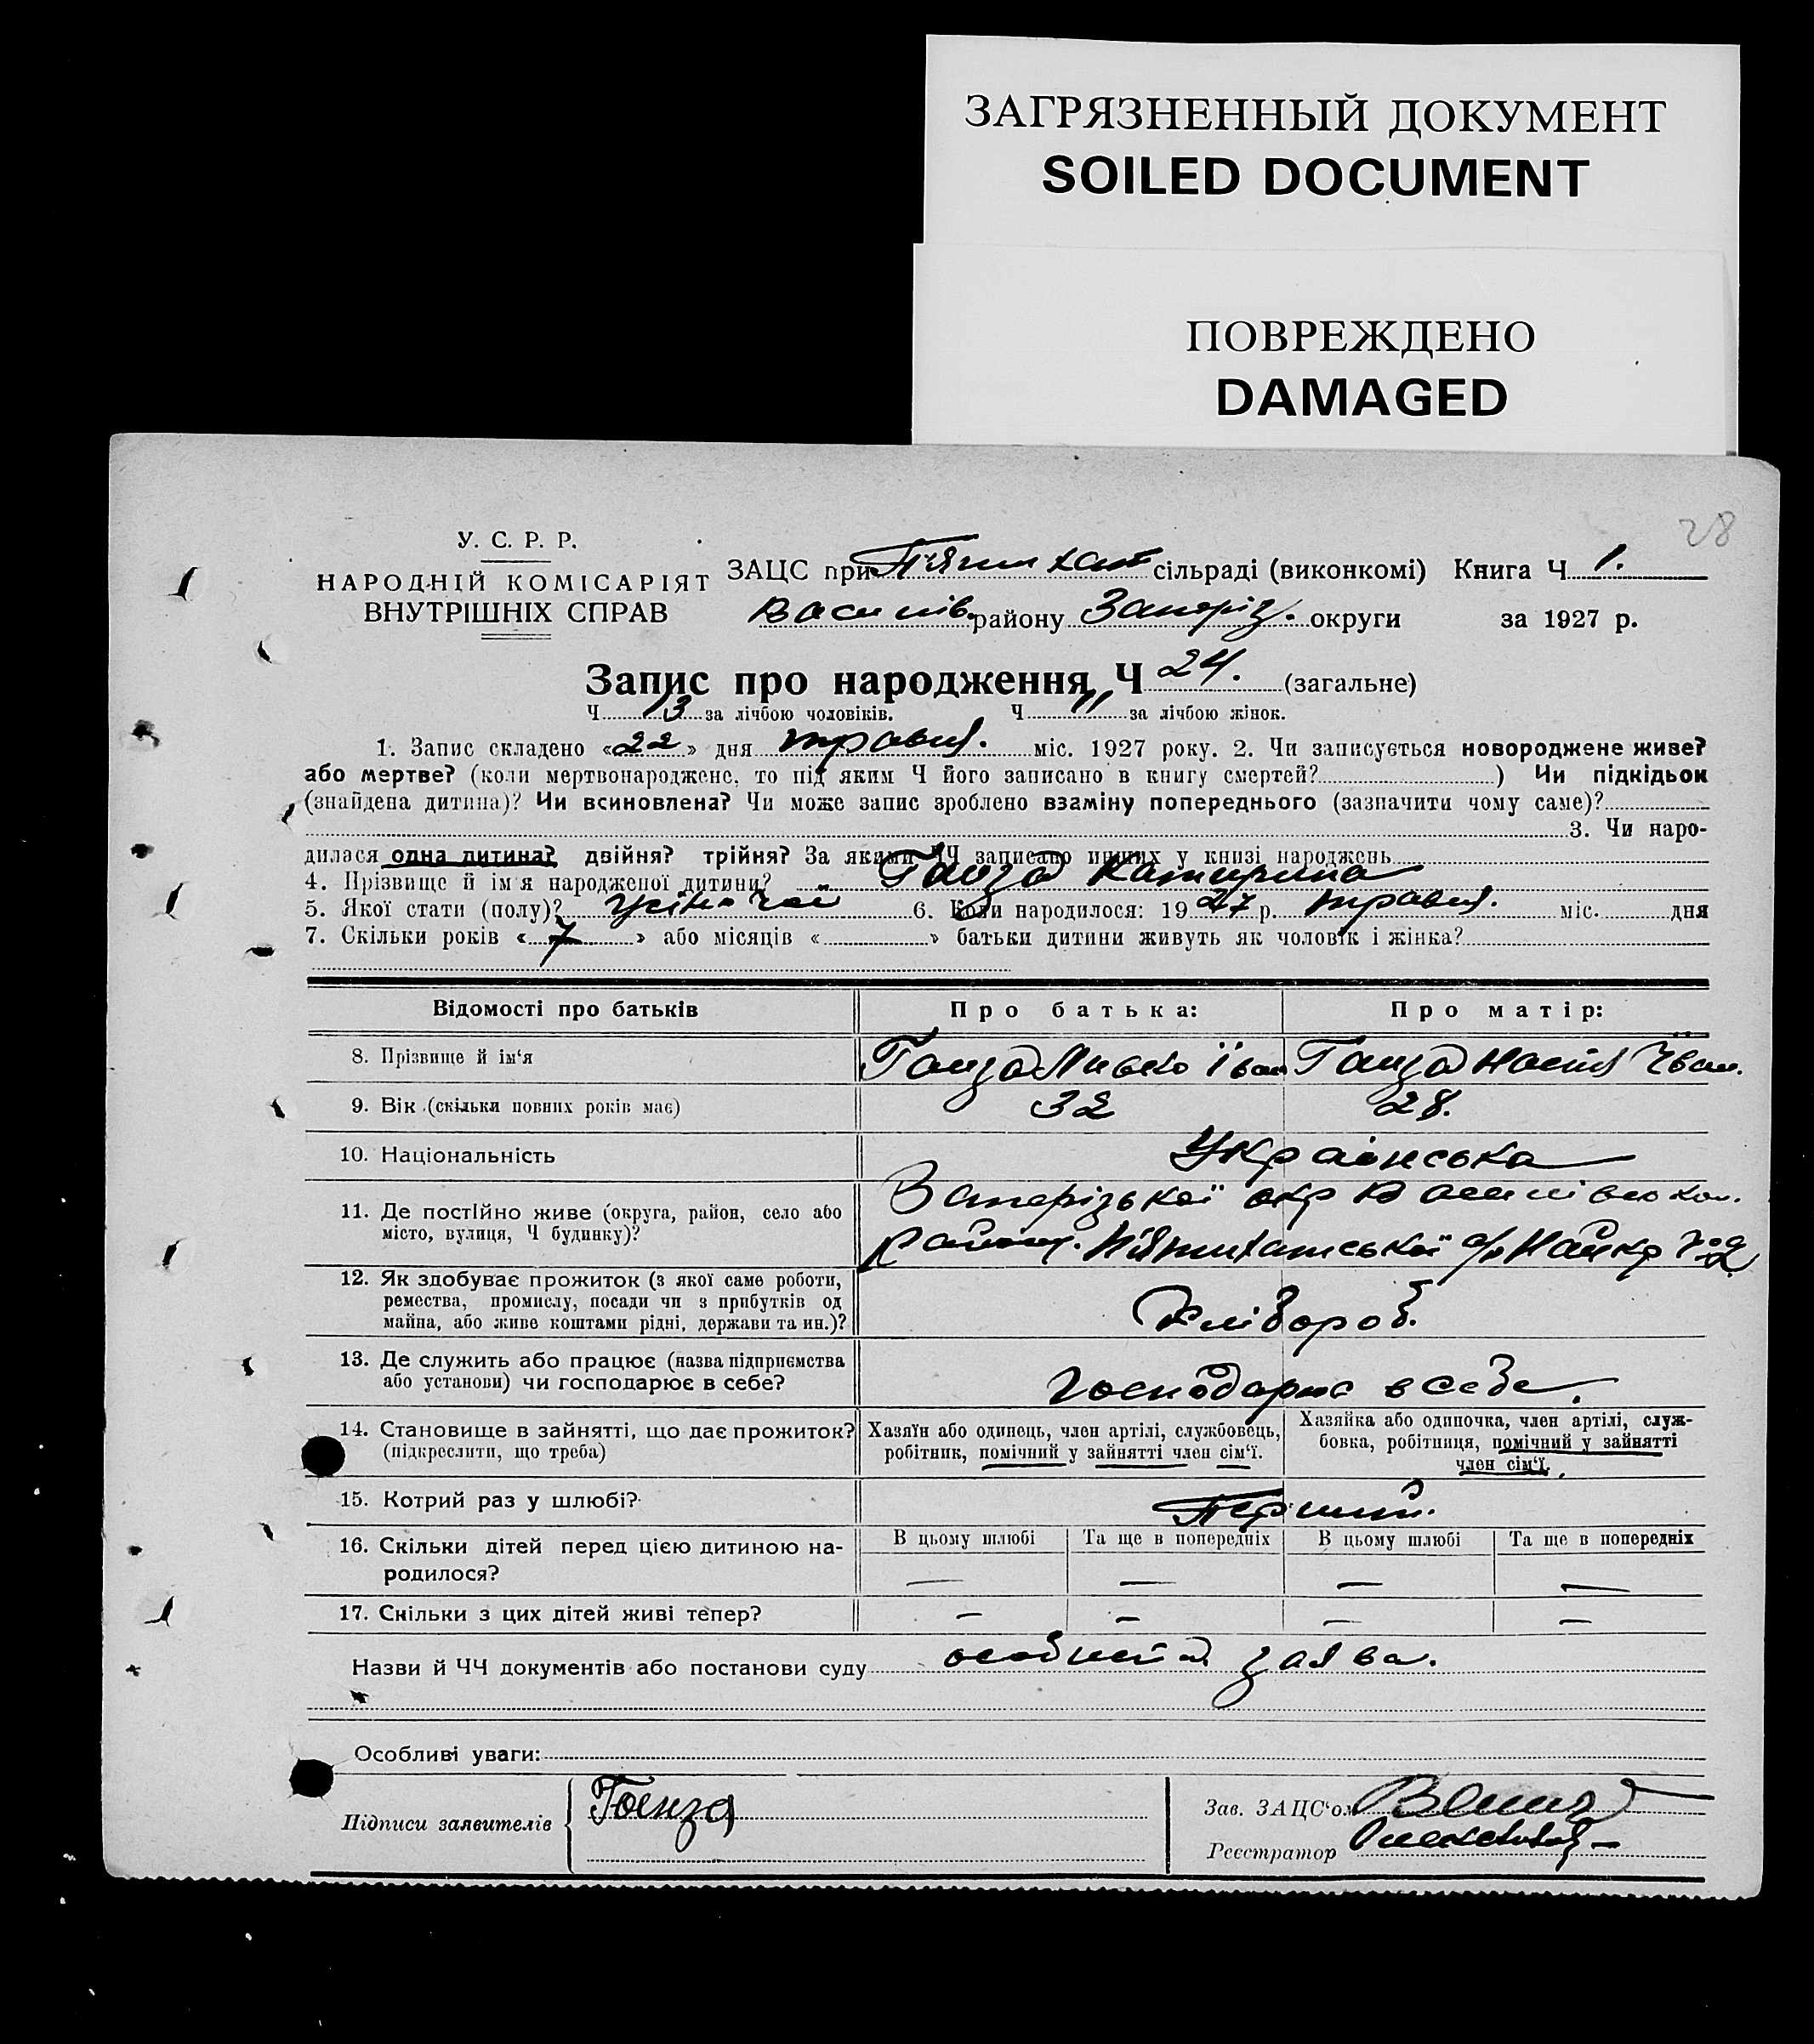 ЗАГРЯЗНЕННЫЙ ДОКУМЕНТ
SOILED DOCUMENT
ПОВРЕЖДЕНО
DAMAGED
28
У. С. Р. Р.
НАРОДНІЙ КОМІСАРІЯТ
ВНУТРІШНІХ СПРАВ
ЗАЦС при Пʼятихат сільраді (виконкомі) Книга Ч 1.
Василів. району Запоріз. округи за 1927 р.
Запис про народження Ч 24. (загальне)
Ч 13 за лічбою чоловіків. Ч 11 за лічбою жінок.
1. Запис складено «22» дня травня. міс. 1927 року. 2. Чи записується новороджене живе?
або мертве? (коли мертвонароджене, то під яким Ч його записано в книгу смертей? ) Чи підкідьок
(знайдена дитина)? Чи всиновлена? Чи може запис зроблено взаміну попереднього (зазначити чому саме)?
3. Чи наро-
дилася одна дитина? двійня? трійня? За якими ЧЧ записано инших у книзі народжень
4. Прізвище й імʼя народженої дитини? Ганза Катирина
5. Якої стати (полу)? жіночої 6. Коли народилося: 1927 р. травня. міс. дня
7. Скільки років «7» або місяців « » батьки дитини живуть як чоловік і жінка?
Відомості про батьків Про батька: Про матір:
8. Прізвище й імʼя Ганза Ливко Іван Ганза Настя Іван.
9. Вік (скільки повних років має) 32 28.
10. Національність Українська
11. Де постійно живе (округа, район, село або місто, вулиця, Ч будинку)?
Запорізької окр Василівської
район. Пʼятихатської с/р
12. Як здобуває прожиток (з якої саме роботи,
ремества, промислу, посади чи з прибутків од
майна, або живе коштами рідні, держави та ин.)?
Хлібороб.
13. Де служить або працює (назва підприємства
або установи) чи господарює в себе?
господарює в себе.
14. Становище в зайнятті, що дає прожиток?
(підкреслити, що треба)
Хазяїн або одинець, член артілі, службовець,
робітник, помічний у зайнятті член сімʻї.
Хазяйка або одиночка, член артілі, служ-
бовка, робітниця, помічний у зайнятті
член сімʻї.
15. Котрий раз у шлюбі? Перший.
16. Скільки дітей перед цією дитиною на-
родилося?
В цьому шлюбі Та ще в попередніх В цьому шлюбі Та ще в попередніх
— — — —
17. Скільки з цих дітей живі тепер? — — — —
Назви й ЧЧ документів або постанови суду особиста заява.
Особливі уваги:
Підписи заявителів Ганза
Зав. ЗАЦСʻом
Реєстратор